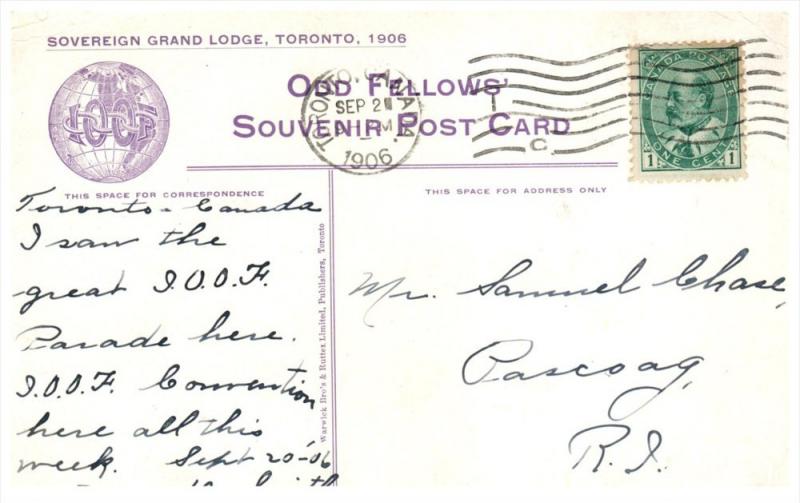 SOVEREIGN GRAND LODGE, TORONTO, 1906
IOOF
ODD FELLOWS'
SOUVENIR POST CARD
TORONTO, CANADA
SEP 2
M
1906
C
CANADA POSTAGE
1 ONE CENT 1
THIS SPACE FOR CORRESPONDENCE
THIS SPACE FOR ADDRESS ONLY
Toronto - Canada
I saw the
great I.O.O.F.
Parade here.
I.O.O.F. Convention
here all this
week. Sept 20-06
Warwick Bro's & Rutter, Limited, Publishers, Toronto
Mr. Samuel Chase,
Pascoag,
R.I.